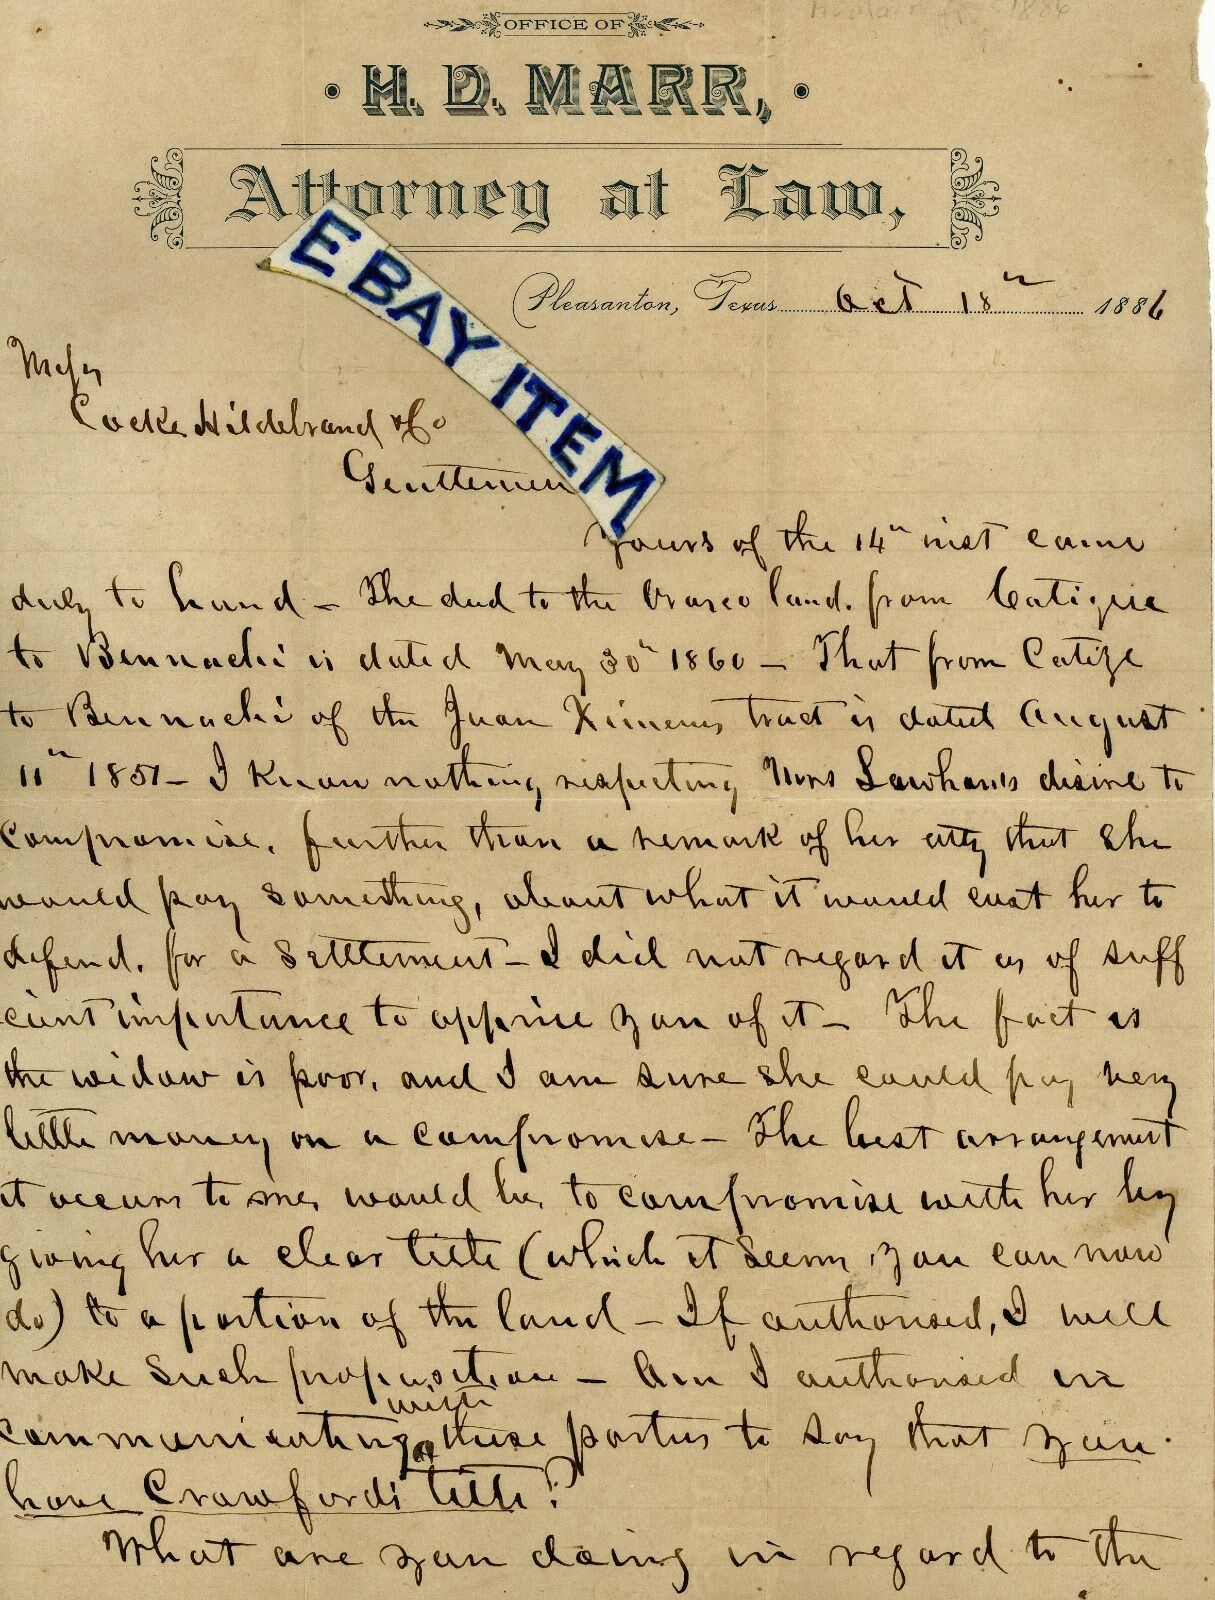 OFFICE OF
H. D. MARR,
Attorney at Law,
EBAY ITEM
Pleasanton, Texas Oct 18" 1886
Messrs
Cocke Hildebrand & Co
Gentlemen
Yours of the 14" inst came
duly to hand – The deed to the land. from
to Bennachi is dated May 30" 1860 – That from
to Bennachi of the Juan Ximenes tract is dated August
11" 1851 – I know nothing respecting Mrs Lawhon's desire to
compromise, further than a remark of her atty that she
would pay something, about what it would cost her to
defend, for a settlement – I did not regard it as of suff
cient importance to apprise you of it – The fact is
the widow is poor, and I am sure she could pay very
little money on a compromise – The best arrangement
it occurs to me, would be, to compromise with her by
giving her a clear title (which it seems you can now
do) to a portion of the land – If authorised, I will
make such proposition – Am I authorised in
communicating with these parties to say that you
have Crawford's title?
What are you doing in regard to the